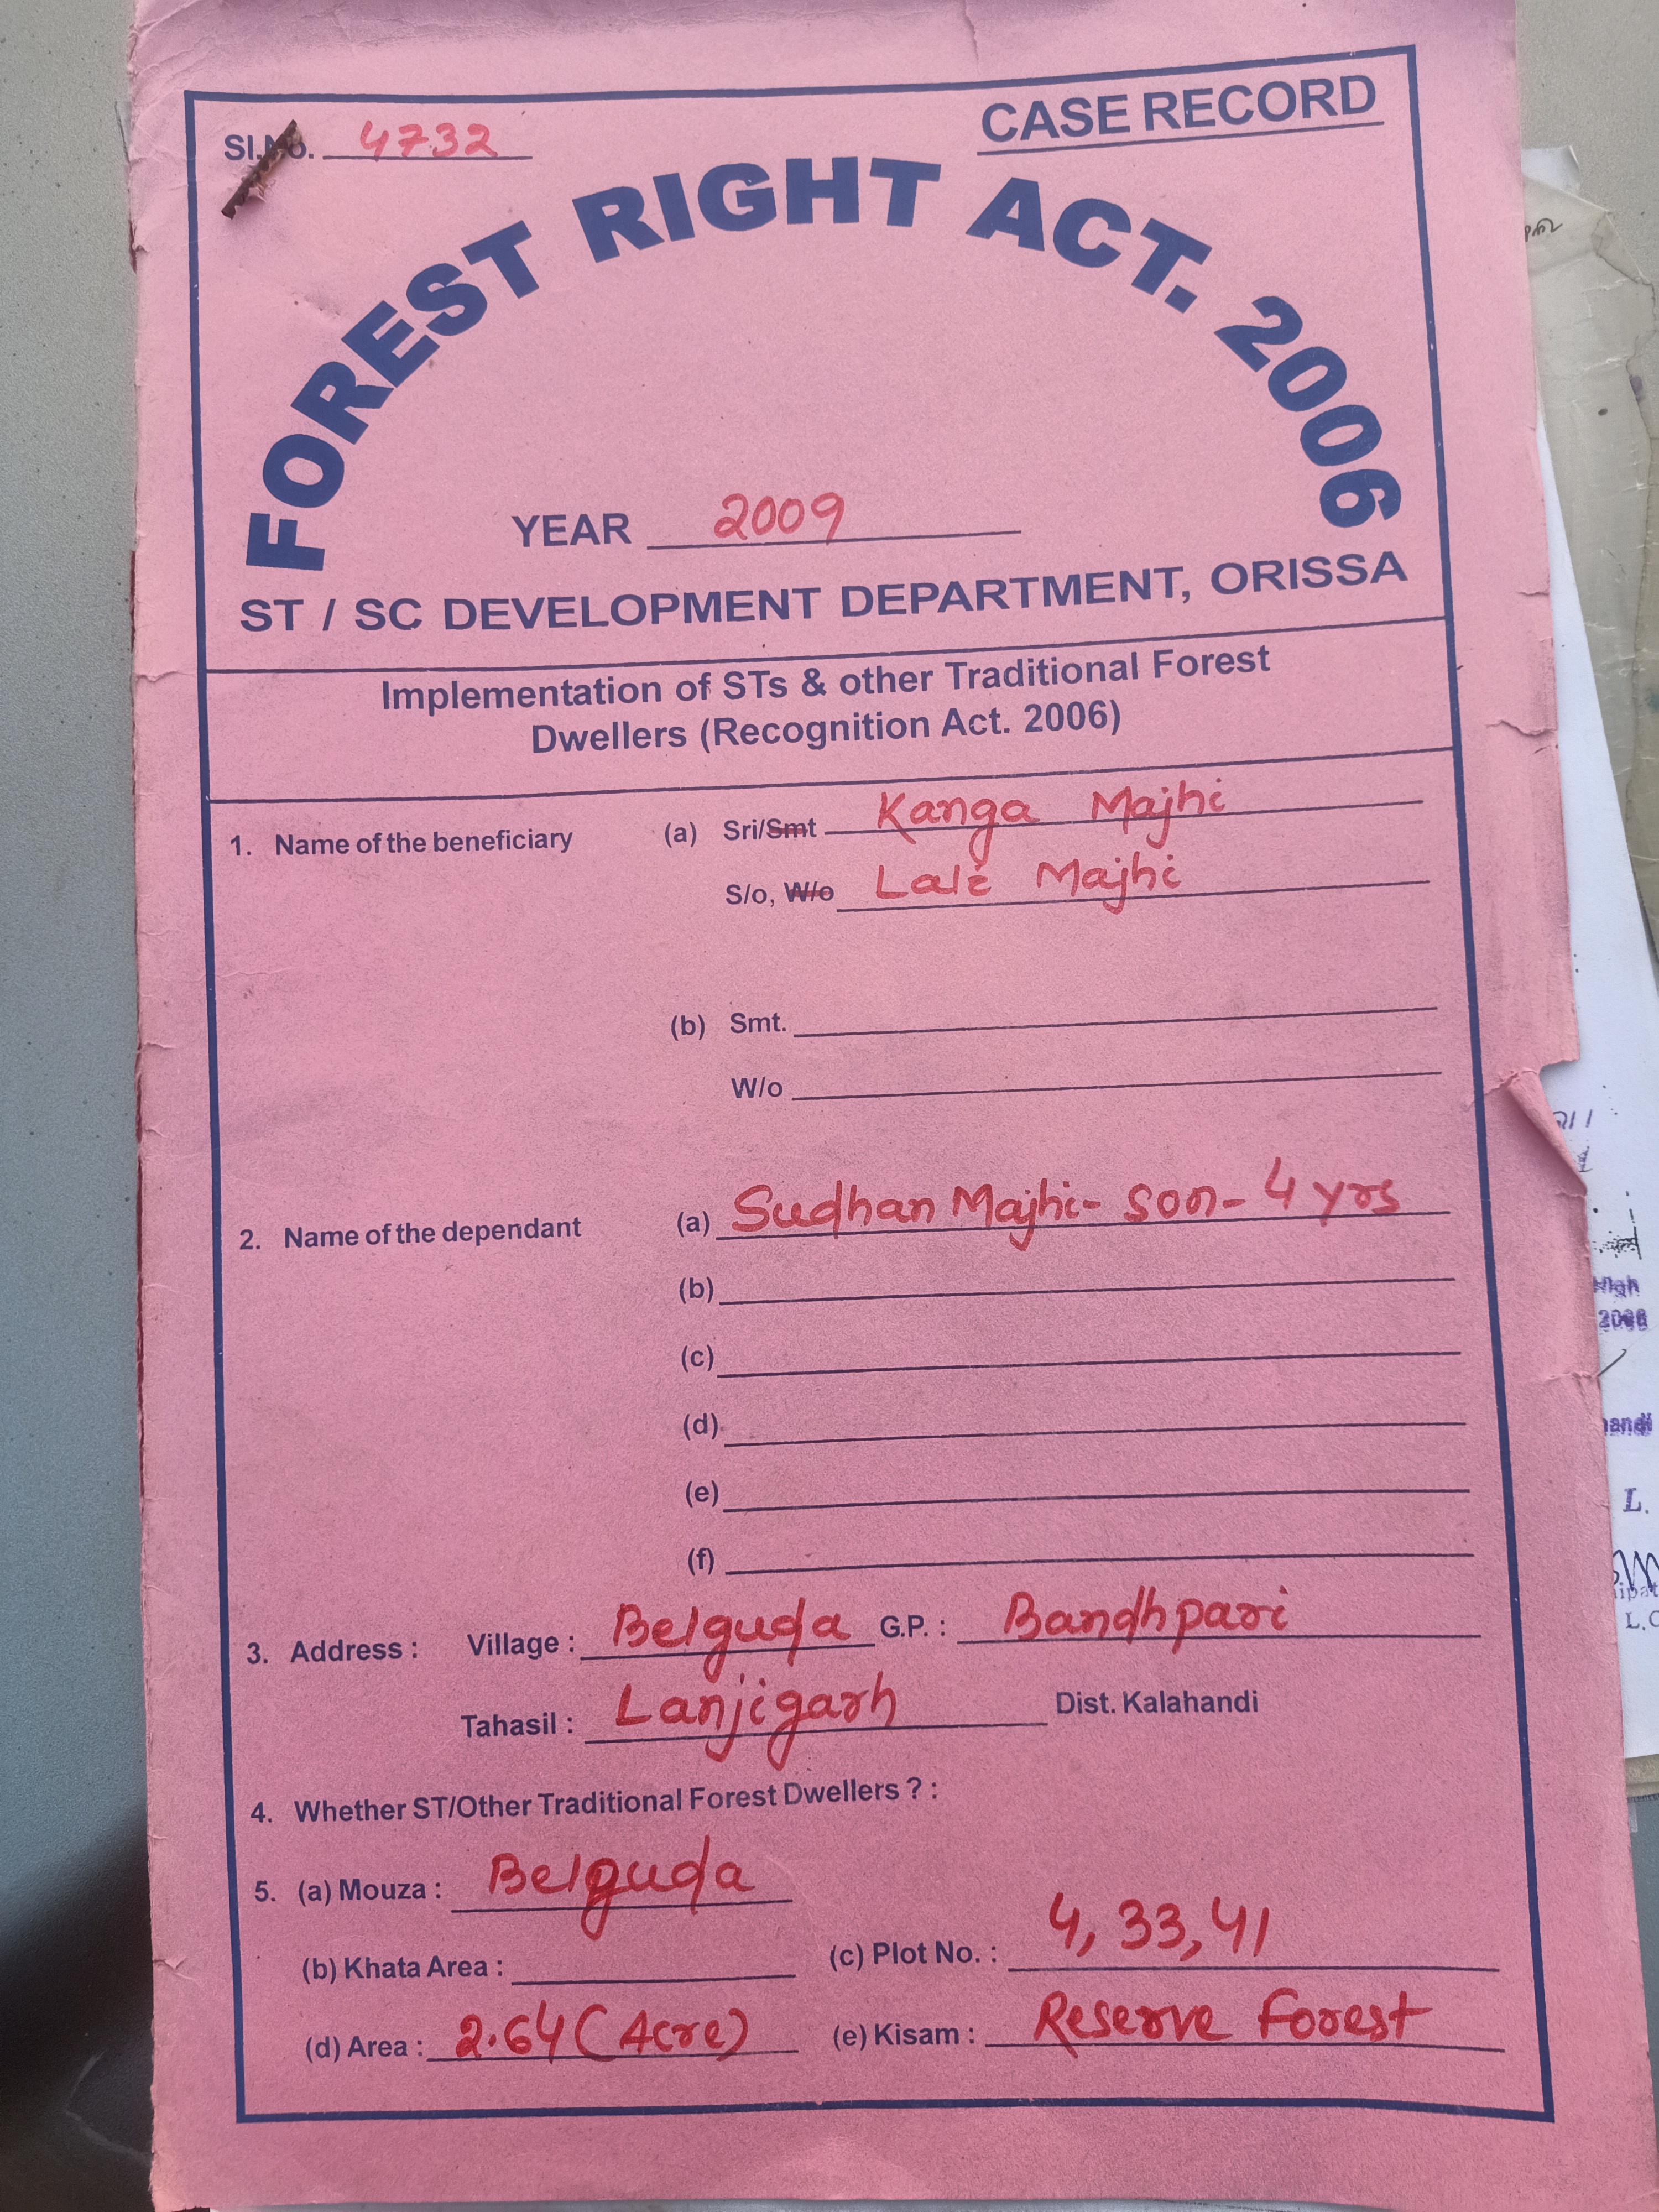 Sl.No. 4732
CASE RECORD
FOREST RIGHT ACT. 2006
YEAR 2009
ST / SC DEVELOPMENT DEPARTMENT, ORISSA
Implementation of STs & other Traditional Forest
Dwellers (Recognition Act. 2006)
1. Name of the beneficiary (a) Sri/Smt Kanga Majhi
S/o, W/o Lali Majhi
(b) Smt.
W/o
2. Name of the dependant (a) Sudhan Majhi- son- 4 yrs
(b)
(c)
(d)
(e)
(f)
3. Address : Village : Belguda G.P. : Bandhpari
Tahasil : Lanjigarh Dist. Kalahandi
4. Whether ST/Other Traditional Forest Dwellers ? :
5. (a) Mouza : Belguda
(b) Khata Area : (c) Plot No. : 4, 33, 41
(d) Area : 2.64 (Acre) (e) Kisam : Reserve Forest
2006
L.